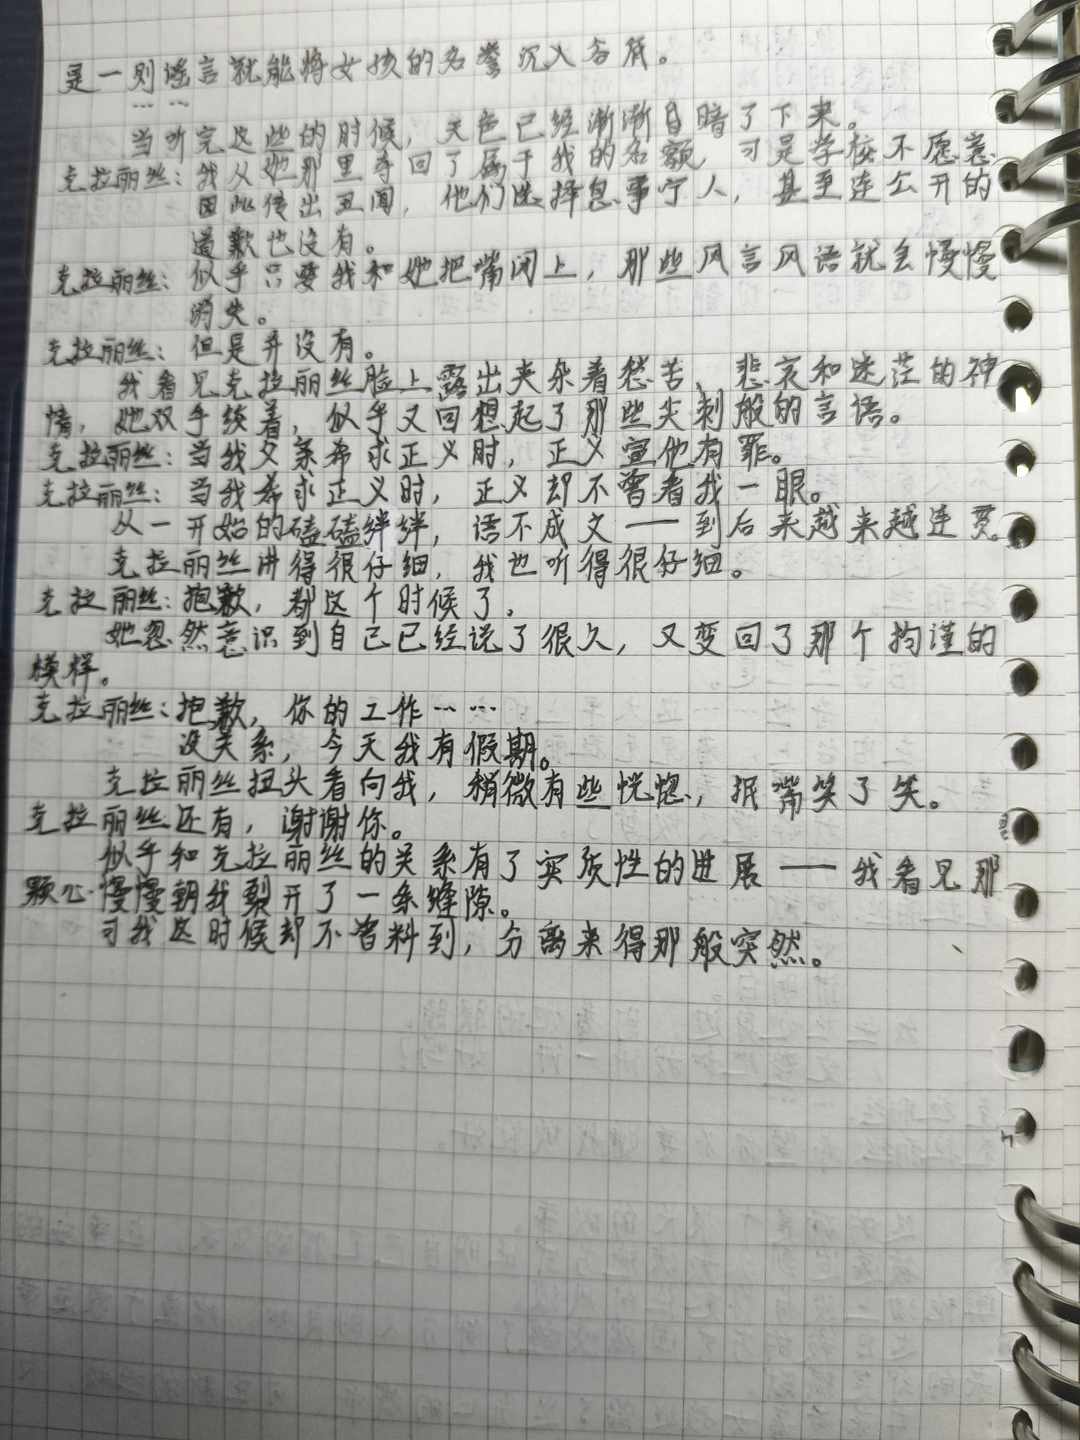 是一则谣言就能将女孩的名誉沉入谷底。
……
当听完这些的时候，天色已经渐渐昏暗了下来。
克拉丽丝：我从她那里夺回了属于我的名额，可是学校不愿意
因此传出丑闻，他们选择息事宁人，甚至连公开的
道歉也没有。
克拉丽丝：似乎只要我和她把嘴闭上，那些风言风语就会慢慢
消失。
克拉丽丝：但是并没有。
我看见克拉丽丝脸上露出夹杂着愁苦、悲哀和迷茫的神
情，她双手绞着，似乎又回想起了那些尖刺般的言语。
克拉丽丝：当我父亲希求正义时，正义宣他有罪。
克拉丽丝：当我希求正义时，正义却不曾看我一眼。
从一开始的磕磕绊绊，语不成文——到后来越来越连贯。
克拉丽丝讲得很仔细，我也听得很仔细。
克拉丽丝：抱歉，都这个时候了。
她忽然意识到自己已经说了很久，又变回了那个拘谨的
模样。
克拉丽丝：抱歉，你的工作……
没关系，今天我有假期。
克拉丽丝扭头看向我，稍微有些恍惚，抿嘴笑了笑。
克拉丽丝还有，谢谢你。
似乎和克拉丽丝的关系有了实质性的进展——我看见那
颗心慢慢朝我裂开了一条缝隙。
可我这时候却不曾料到，分离来得那般突然。